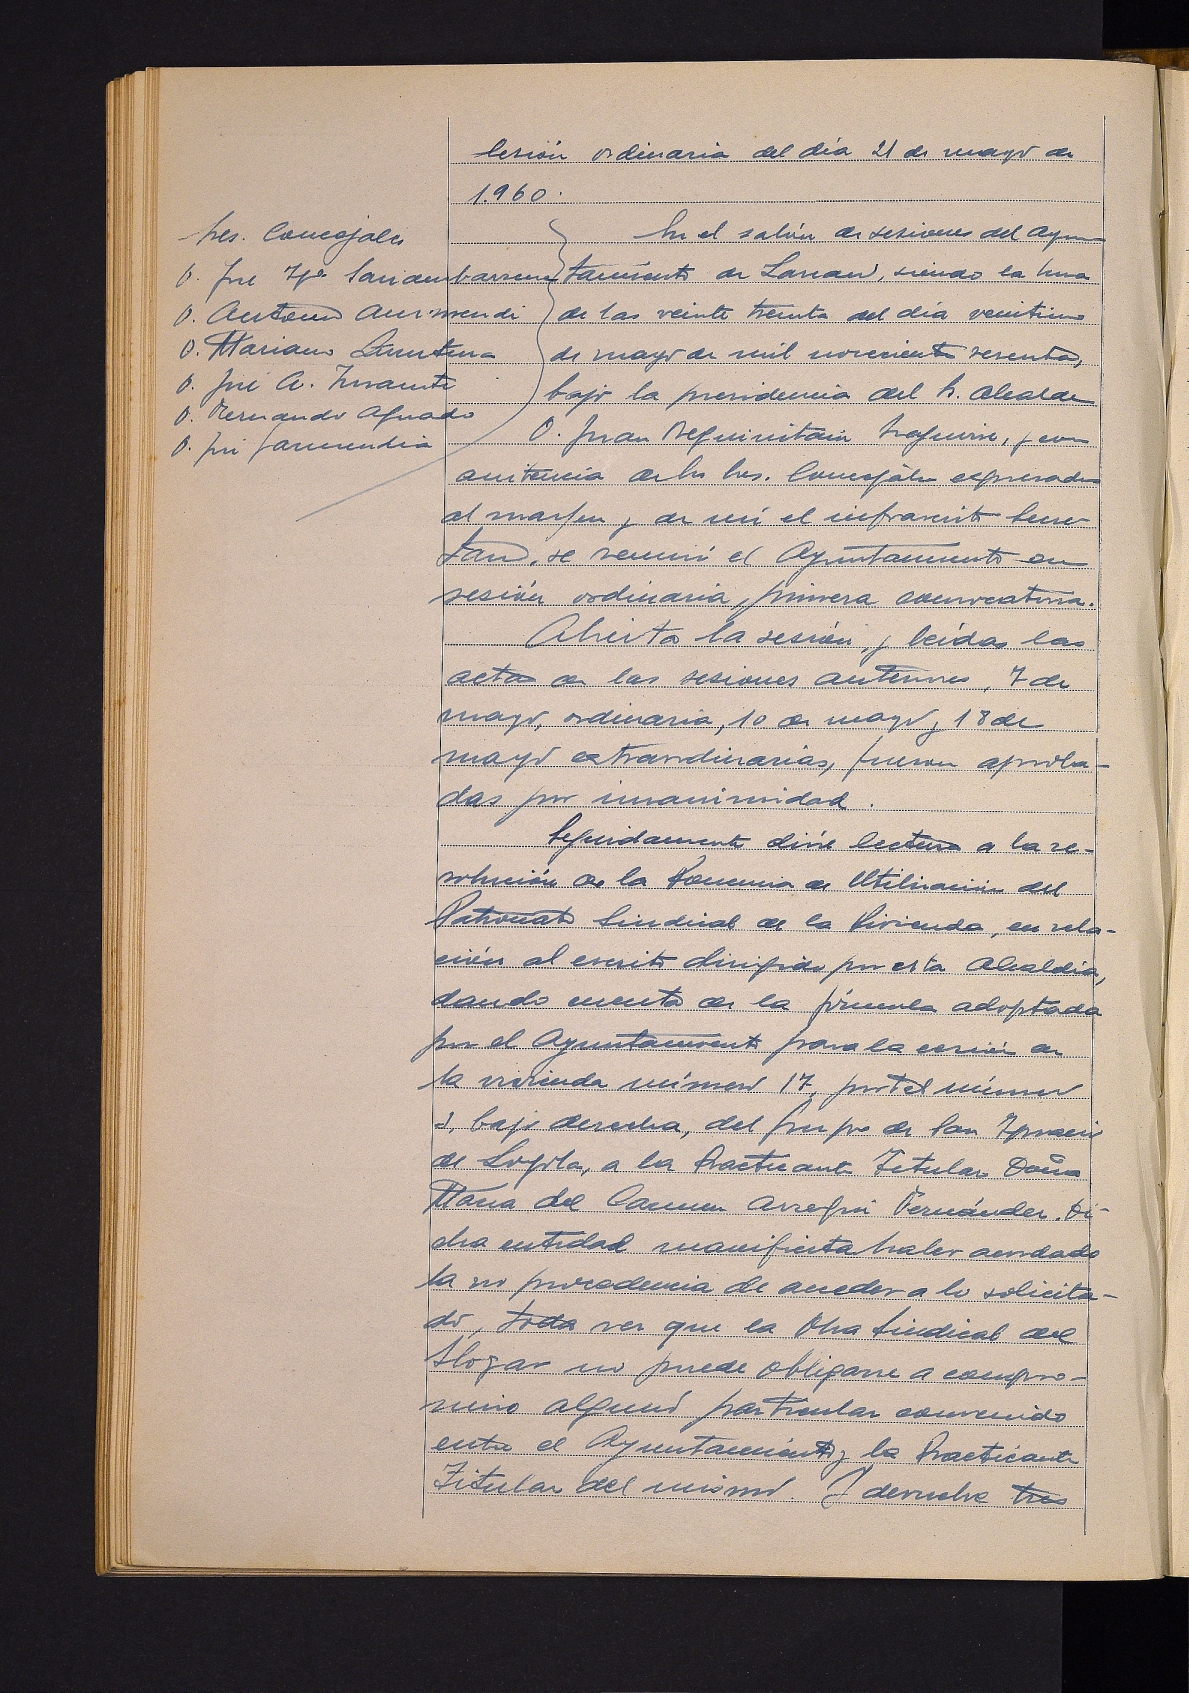 Sesión ordinaria del día 21 de mayo de
1.960.
Sres. Concejales
D. José Ig.º Sarianbarrena
D. Antonio Aurmendi
D. Mariano
D. José A. Insausti
D. Fernando Aguado
D. José Garmendia
En el salón de sesiones del Ayun
tamiento de Lazcano, siendo la hora
de las veinte treinta del día veintiuno
de mayo de mil novecientos sesenta,
bajo la presidencia del Sr. Alcalde
D. Juan Iraguirre, y con
asistencia de los Sres. Concejales expresados
al margen y de mí el infrascrito Secre
tario, se reunió el Ayuntamiento en
sesión ordinaria, primera convocatoria.
Abierta la sesión, y leídas las
actas de las sesiones anteriores, 7 de
mayo, ordinaria, 10 de mayo y 18 de
mayo extraordinarias, fueron aproba-
das por unanimidad.
Seguidamente dióse lectura a la re-
solución de la Ponencia de Utilización del
Patronato Sindical de la Vivienda, en rela-
ción al escrito dirigido por esta Alcaldía,
dando cuenta de la fórmula adoptada
por el Ayuntamiento para la cesión de
la vivienda número 17, portal número
2, bajo derecha, del Grupo de San Ignacio
de Loyola, a la Practicante Titular Doña
María del Carmen Arregui Fernández. Di-
cha entidad manifiesta haber acordado
la no procedencia de acceder a lo solicita-
do, toda vez que la Obra Sindical del
Hogar no puede obligarse a compro-
miso alguno particular convenido
entre el Ayuntamiento y la Practicante
Titular del mismo. Y devuelve tres